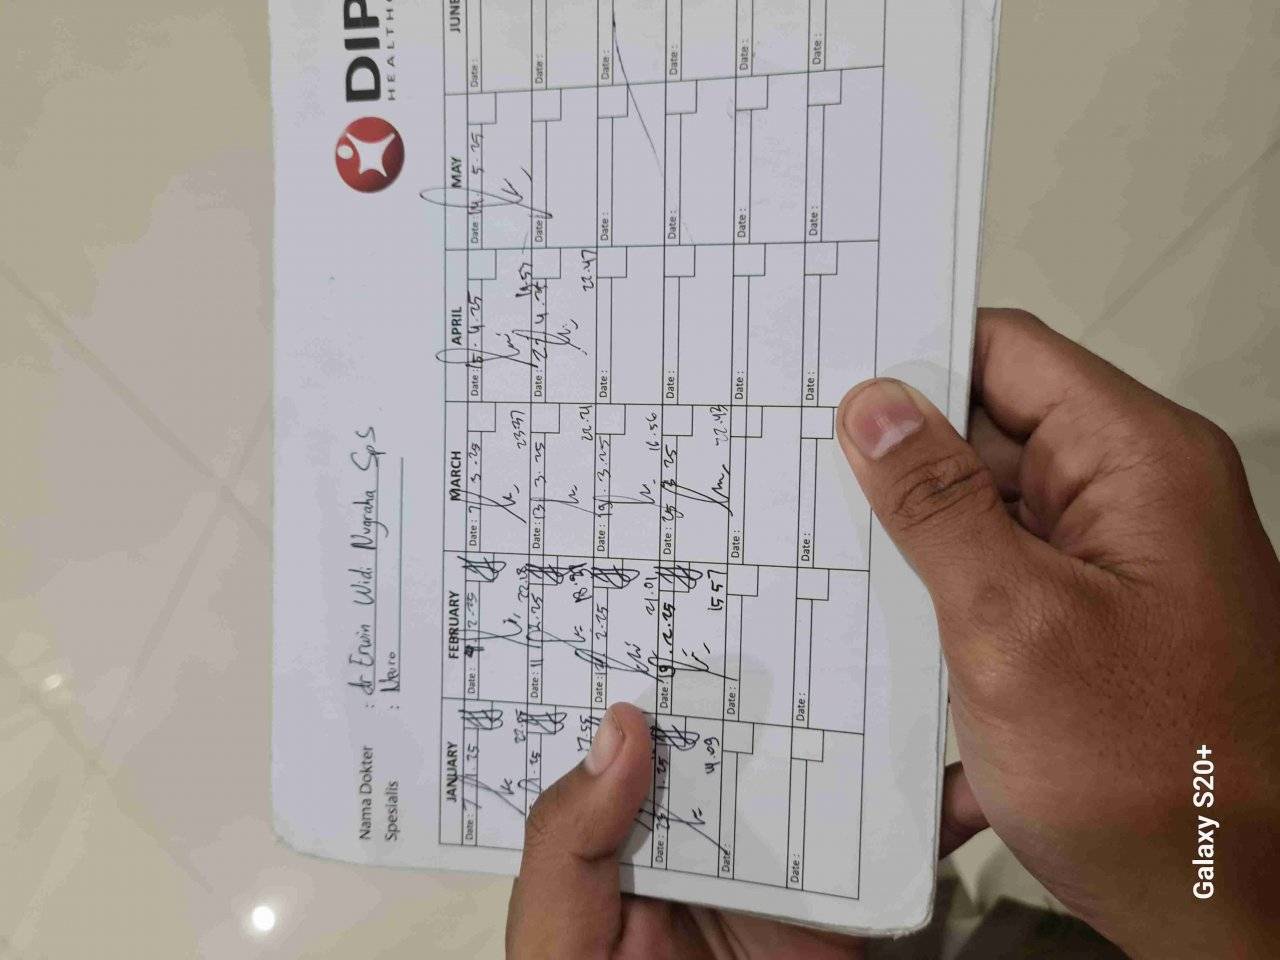 DIP
HEALTHC
Nama Dokter : dr Erwin Widi Nugraha Sp S
Spesialis : Neuro
JANUARY FEBRUARY MARCH APRIL MAY JUNE
Date : 7 1.25 Date : 4.2.25 Date : 7 3.25 Date : 15.4.25 Date : 14.5.25 Date :
22.18 23.37 19.57
.25 Date : 11 2.25 Date : 13 3.25 Date : 22 4.25 Date : Date :
17.55 18.39 22.21 22.47
Date : 2.25 Date : 19.3.25 Date : Date : Date :
21.01 16.56
Date : 1.25 Date : 19.2.25 Date : 25 3 25 Date : Date : Date :
14.09 15.57 22.43
Date : Date : Date : Date : Date : Date :
Date : Date : Date : Date : Date : Date :
Galaxy S20+